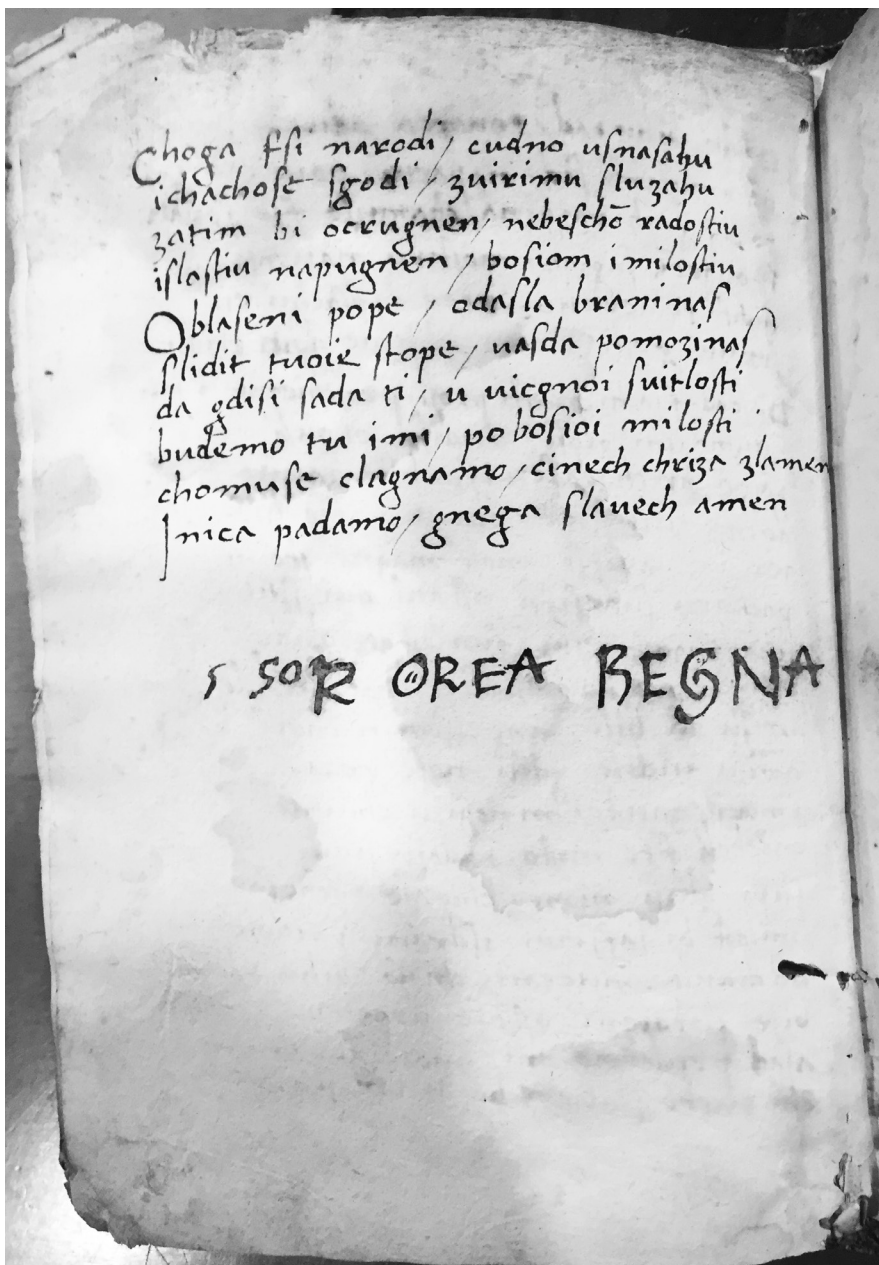 Choga fsi narodi / cudno usnasahu
ichachose sgodi / zuirimu sluzahu
zatim bi ocrugnen / nebeschō radostiu
islastiu napugnen / bosiom i milostiu
Oblaseni pope / odasla braninas
slidit tuoie stope / uasda pomozinas
da gdisi sada ti / u uicgnoi suitlosti
budemo tu imi / po bosioi milosti
chomuse clagnamo / cinech chriza zlamen
Inica padamo / gnega slauech amen
s SOR OREA REGNA